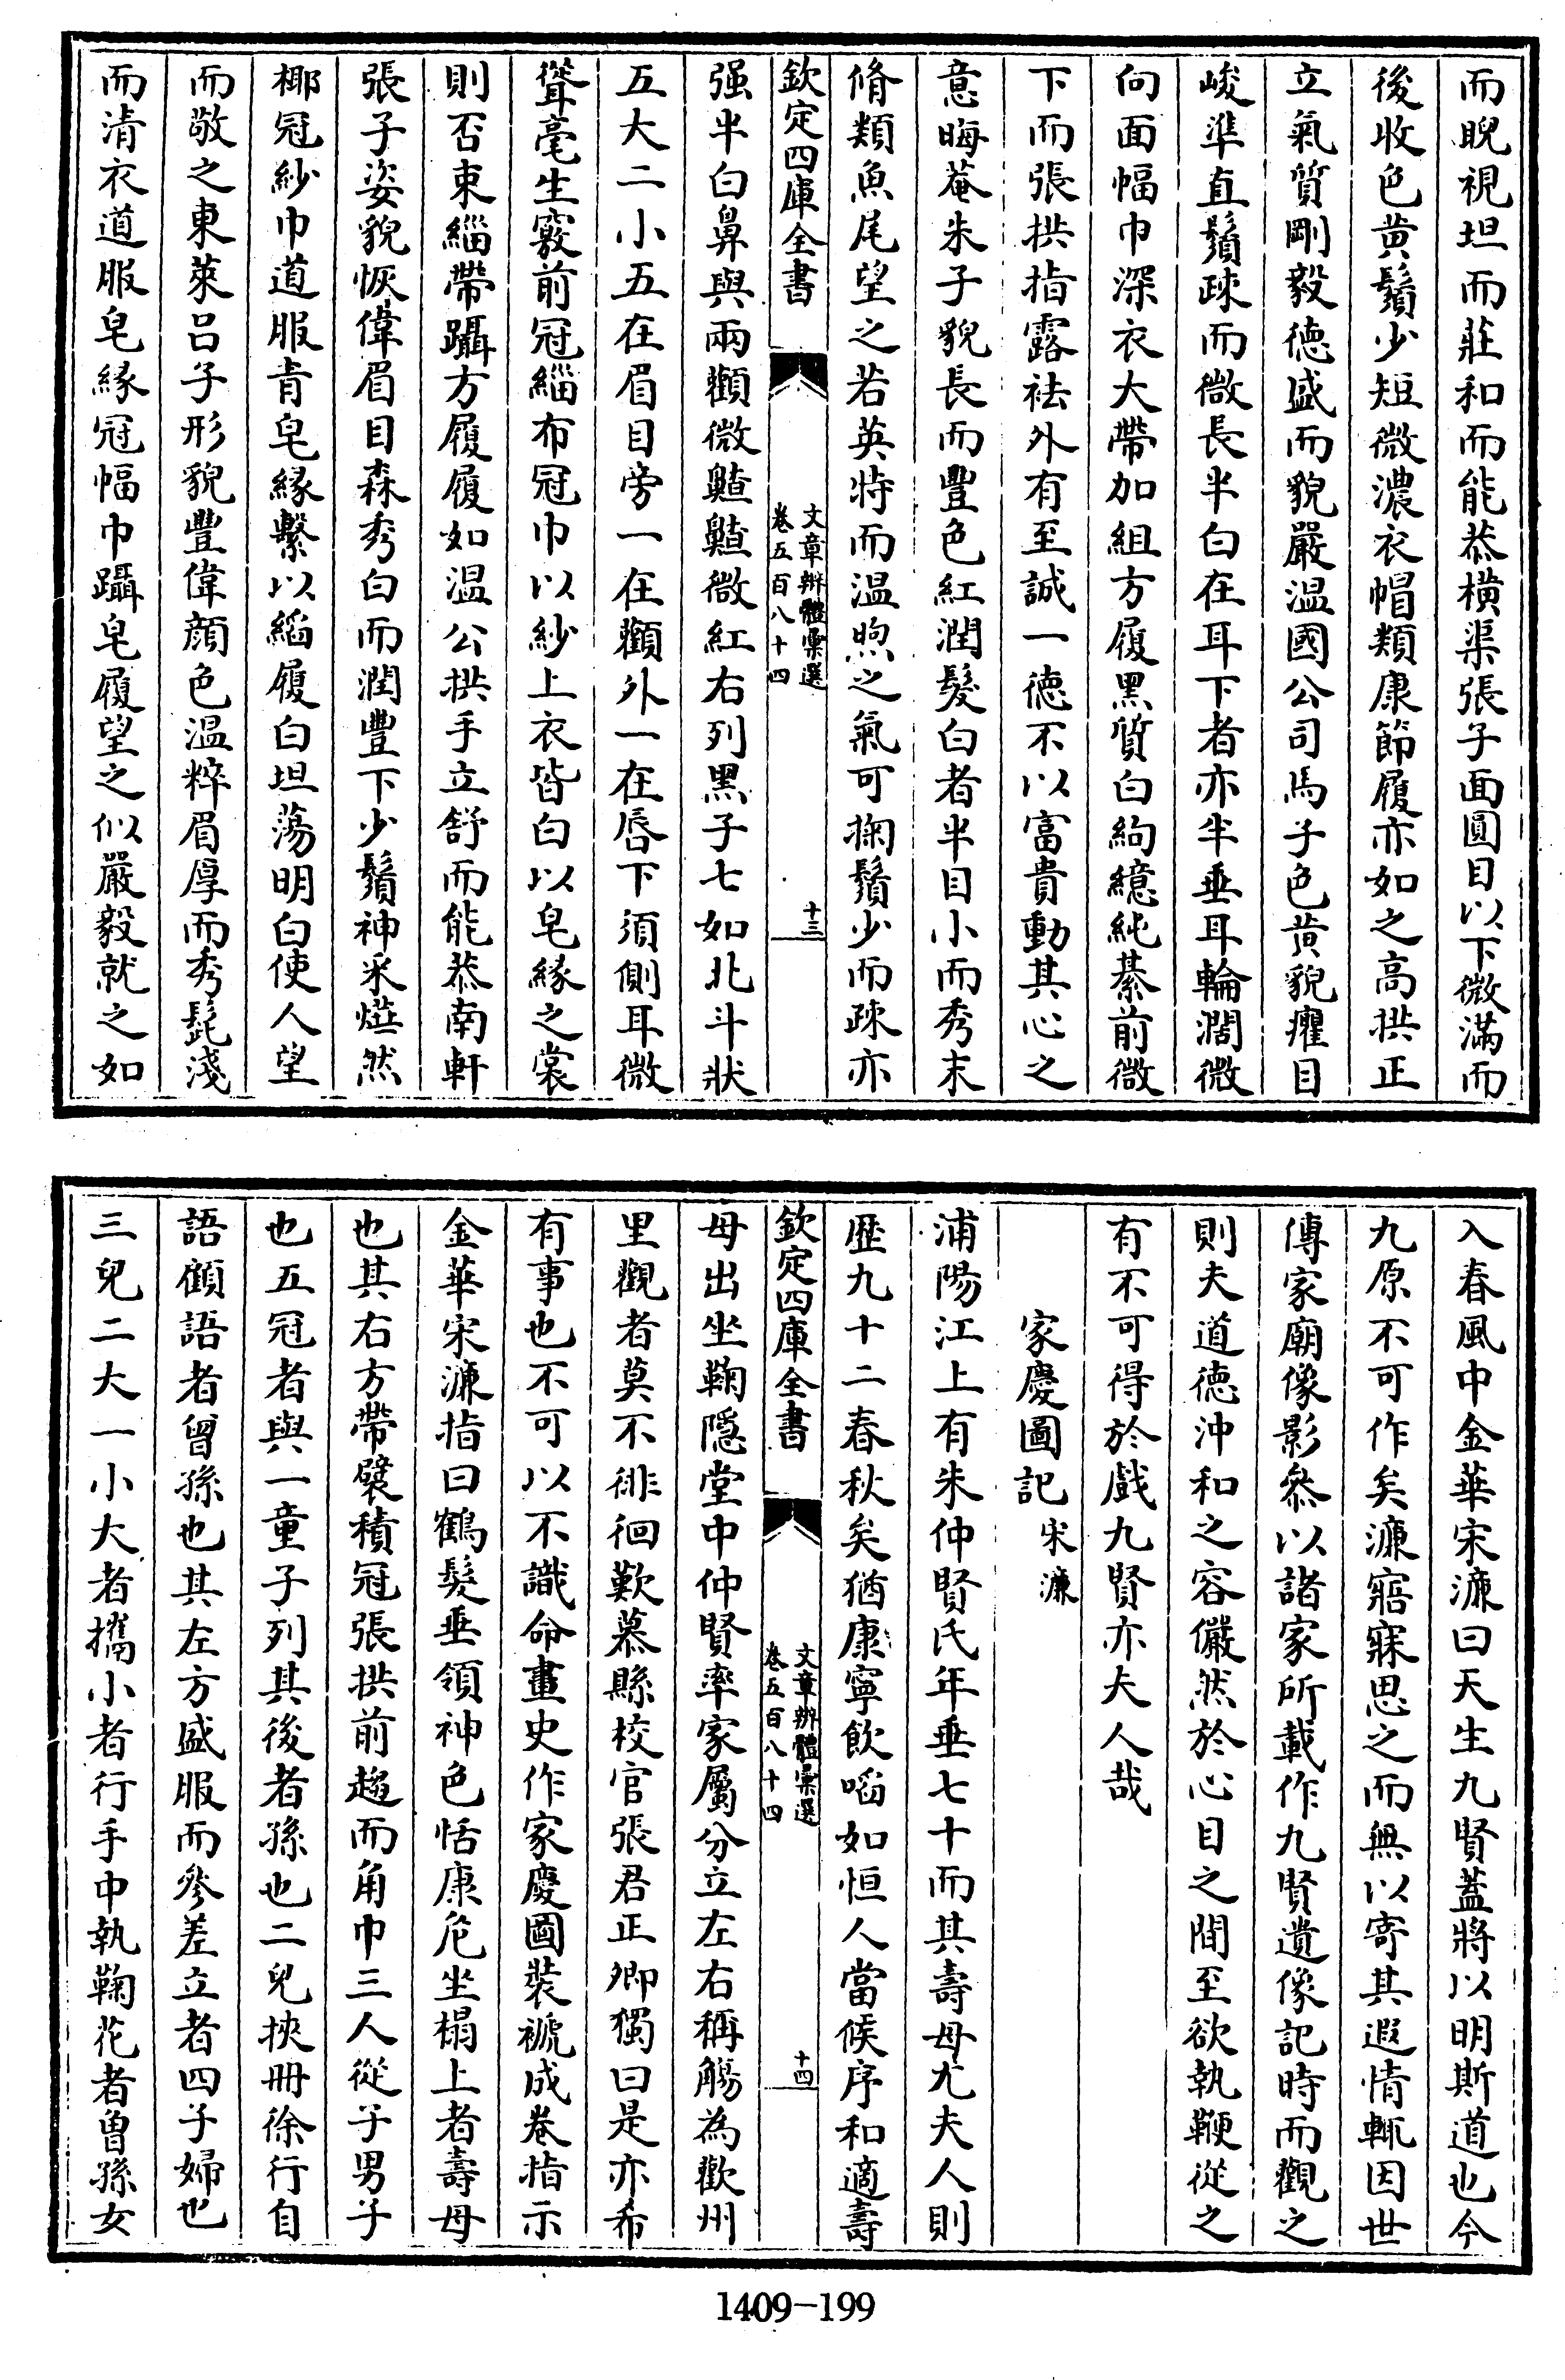 而睨視坦而莊和而能恭橫渠張子面圓目以下微滿而
後收色黄鬚少短微濃衣帽類康節履亦如之高拱正
立氣質剛毅德盛而貌嚴温國公司馬子色黄貌癯目
峻準直鬚疎而微長半白在耳下者亦半垂耳輪濶微
向面幅巾深衣大帶加組方履黑質白絇繶純綦前微
下而張拱指露袪外有至誠一德不以富貴動其心之
意晦菴朱子貌長而豐色紅潤髮白者半目小而秀末
脩類魚尾望之若英特而温煦之氣可掬鬚少而疎亦
欽定四庫全書
文章辨體彙選
卷五百八十四
十三
强半白鼻與兩顴微齇齇微紅右列黑子七如北斗狀
五大二小五在眉目旁一在顴外一在唇下須側耳微
聳毫生竅前冠緇布冠巾以紗上衣皆白以皂緣之裳
則否束緇帶躡方履履如温公拱手立舒而能恭南軒
張子姿貌恢偉眉目森秀白而潤豐下少鬚神采燁然
椰冠紗巾道服青皂緣繫以縚履白坦蕩明白使人望
而敬之東萊吕子形貌豐偉顔色温粹眉厚而秀髭淺
而清衣道服皂緣冠幅巾躡皂履望之似嚴毅就之如
入春風中金華宋濂曰天生九賢蓋將以明斯道也今
九原不可作矣濂寤寐思之而無以寄其遐情輒因世
傳家廟像影叅以諸家所載作九賢遺像記時而觀之
則夫道德沖和之容儼然於心目之間至欲執鞭從之
有不可得於戲九賢亦夫人哉
家慶圖記 宋濂
浦陽江上有朱仲賢氏年垂七十而其壽母尤夫人則
歴九十二春秋矣猶康寧飲啗如恒人當候序和適壽
欽定四庫全書
文章辨體彙選
卷五百八十四
十四
母出坐鞠隱堂中仲賢率家屬分立左右稱觴為歡州
里觀者莫不徘徊歎慕縣校官張君正卿獨曰是亦希
有事也不可以不識命畫史作家慶圖裝褫成卷指示
金華宋濂指曰鶴髮垂領神色恬康危坐榻上者壽母
也其右方帶襞積冠張拱前趨而角巾三人從子男子
也五冠者與一童子列其後者孫也二兒挾冊徐行自
語顧語者曾孫也其左方盛服而參差立者四子婦也
三兒二大一小大者攜小者行手中執鞠花者曾孫女
1409-199